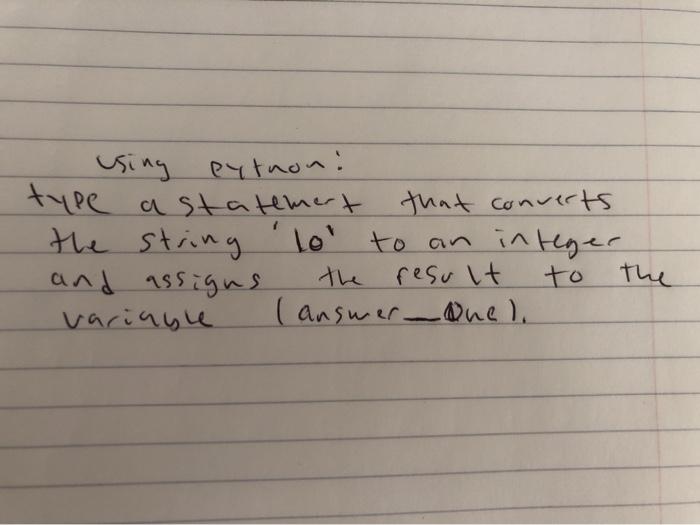 using python:
type a statement that converts
the string '10' to an integer
and assigns the result to the
variable (answer_One).